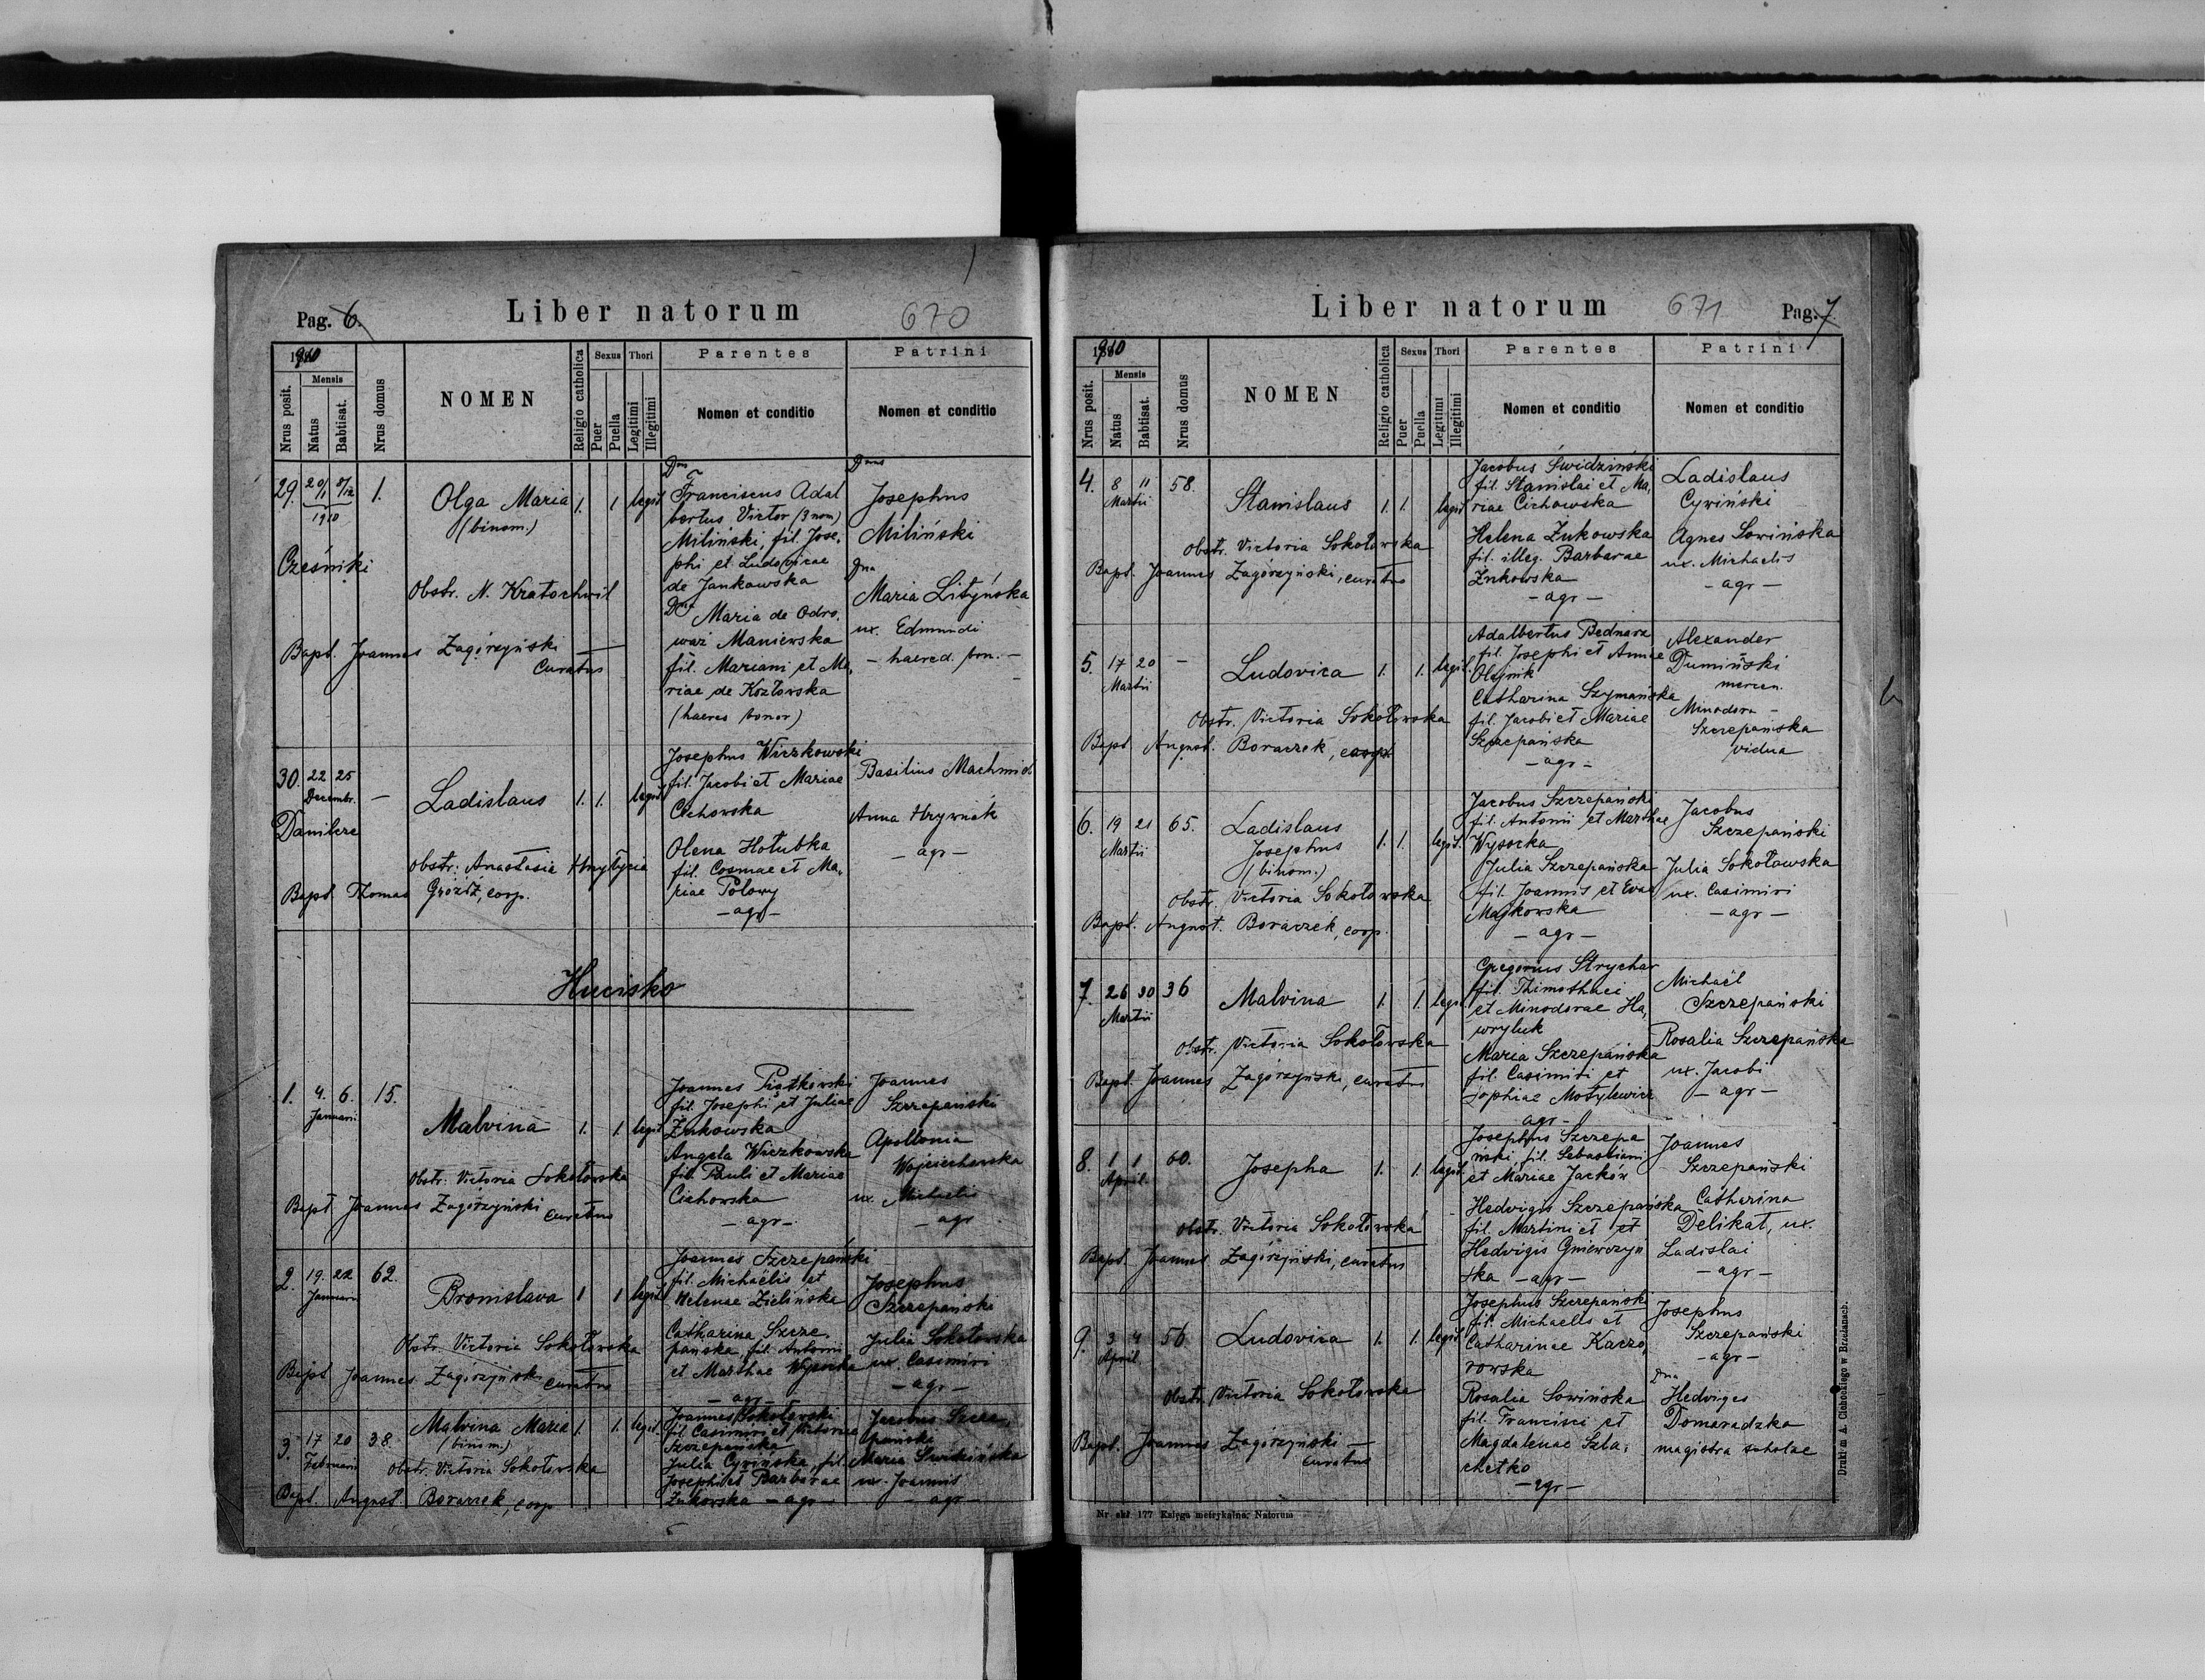 Pag. 6.
Liber natorum
670
1910
Nrus posit.
Mensis
Natus
Babtisat.
Nrus domus
NOMEN
Religio catholica
Sexus
Puer
Puella
Thori
Legitimi
Illegitimi
Parentes
Nomen et conditio
Patrini
Nomen et conditio
29.
1910
Cześniki
1.
Olga Maria
(binom.)
1. 1 legit
Obstr. N. Kratochwil
Bapt. Joannes Zagórzyński
Curatus
Franciscus Adal
bertus Victor (3 nom)
Miliński, fil. Jose,
phi et Ludovicae
de Jankowska
Maria de Odro,
waż Maniewska
fil. Mariani et Ma,
riae de Kozłowska
(haeres bonor)
Josephus
Miliński
Dna
Maria Lityńska
ux. Edmundi
- haered. bon. -
30. 22 25
Decembr. —
Danilcze
Ladislaus
1. 1. legit
Obstr. Anastasia
Bapt. Thomas Gróżdź, coop.
Josephus Wiczkowski
fil. Jacobi et Mariae
Cichowska
Olena Hołubka
fil. Cosmae et Ma,
riae Polowy
- agr -
Basilius Machnid
Anna Hrywnak
- agr -
Hucisko
1. 4. 6. 15.
Januarii
Malvina
1. 1. legit
Obstr. Victoria Sokołowska
Bapt Joannes Zagórzyński curatus
Joannes Piątkowski
fil. Josephi et Juliae
Żukowska
Angela Wiczkowska
fil. Pauli et Mariae
Cichowska
- agr -
Joannes
Szczepański
Apollonia
Wojciechowska
ux. Michaelis
- agr
2. 19. 22 62.
Januarii
Bronislava
1 1 legit
Obstr. Victoria Sokołowska
Bapt Joannes Zagórzyński curatus
Joannes Szczepański
fil. Michaëlis et
Helenae Zielińska
Catharina Szcze,
pańska, fil. Antonii
et Marthae Wysocka
- agr -
Josephus
Szczepański
Julia Sokołowska
ux. Casimiri
- agr -
3. 17 20 38.
Februarii
Malvina Maria
(binom.)
1. 1. legit.
Obstr. Victoria Sokołowska
Bapt. August. Boraczek, coop
Joannes Sokołowski
fil. Casimiri et Victoria
Szczepańska
Julia Cywińska, fil.
Josephi et Barbarae
Żukowska - agr -
Jacobus Szcze,
pański
Maria
ux. Joannis
- agr -
Liber natorum
671
Pag. 7
1910
Nrus posit.
Mensis
Natus
Babtisat.
Nrus domus
NOMEN
Religio catholica
Sexus
Puer
Puella
Thori
Legitumi
Illegitimi
Parentes
Nomen et conditio
Patrini
Nomen et conditio
4. 8 11 58.
Martii
Stanislaus
1. 1. legit
Obstr. Victoria Sokołowska
Bapt. Joannes Zagórzyński, curatus
Jacobus Świdziński
fil. Stanislai et Ma,
riae Cichowska
Helena Żukowska
fil. illeg. Barbarae
Żukowska
- agr -
Ladislaus
Cywiński
Agnes Sowińska
ux. Michaelis
- agr -
5 17 20 -
Martii
Ludovica
1. 1. legit.
Obstr. Victoria Sokołowska
Bapt August. Boraczek, coop.
Adalbertus Bednarz
fil. Josephi et Annae
Olejnik
Catharina Szymańska
fil. Jacobi et Mariae
Szczepańska
- agr -
Alexander
Dumiński
mercen.
Minodora -
Szczepańska
vidua
6. 19 21 65.
Martii
Ladislaus
Josephus
(binom.)
1. 1. legit.
Obstr. Victoria Sokołowska
Bapt. August. Boraczek, coop.
Jacobus Szczepański
fil. Antonii et Marthae
Wysocka
Julia Szczepańska
fil. Joannis et Evae
Majkowska
- agr -
Jacobus
Szczepański
Julia Sokołowska
ux. Casimiri
- agr -
7. 26 30 36
Martii
Malvina
1. 1. legit.
Obstr. Victoria Sokołowska
Bapt. Joannes Zagórzyński, curatus
Gregorius Strychar
fil. Thimothaei
et Minodorae Ha,
wryluk
Maria Szczepańska
fil. Casimiri et
Sophiae Motylewicz
agr -
Michaël
Szczepański
Rosalia Szczepańska
ux. Jacobi
- agr -
8. 1 1 60.
April.
Josepha
1. 1. legit.
Obstr. Victoria Sokołowska
Bapt. Joannes Zagórzyński, curatus
Josephus Szczepa
ński, fil. Sebastiani
et Mariae Jacków
Hedvigis Szczepańska
fil. Martini et et
Hedvigis Gniewczyń
ska - agr -
Joannes
Szczepański
Catharina
Delikat, ux.
Ladislai
- agr -
9. 3 4 56
April
Ludovica
1. 1. legit.
Obstr. Victoria Sokołowska
Bapt. Joannes Zagórzyński
curatus
Josephus Szczepański
fil. Michaelis et
Catharinae Kaczo,
rowska
Rosalia Sowińska
fil. Francisci et
Magdalenae Szla,
chetko
- agr -
Josephus
Szczepański
- agr -
Dna
Hedviges
Domaradzka
magistra scholae
Nr skł 177 Księga metrykalna: Natorum
Drukiem A. Ciehockiego w Brzeżanach.